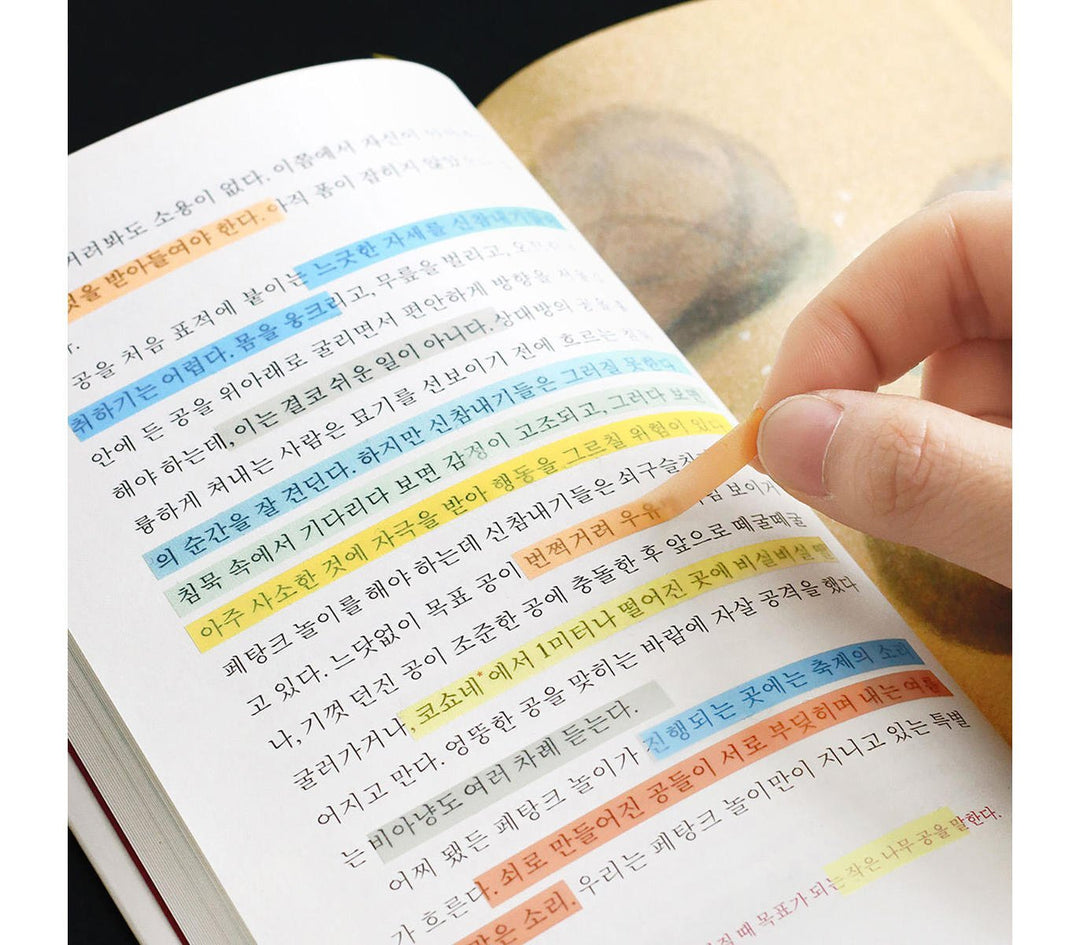 려봐도 소용이 없다. 이쯤에서 자신이
것을 받아들여야 한다. 아직 폼이 잡히지 않았
공을 처음 표적에 붙이는 느긋한 자세를 신참내기들이
취하기는 어렵다. 몸을 웅크리고, 무릎을 벌리고,
안에 든 공을 위아래로 굴리면서 편안하게 방향을
해야 하는데, 이는 결코 쉬운 일이 아니다. 상대방의 공을
륭하게 쳐내는 사람은 묘기를 선보이기 전에 흐르는
의 순간을 잘 견딘다. 하지만 신참내기들은 그러질 못한다
침묵 속에서 기다리다 보면 감정이 고조되고, 그러다 보면
아주 사소한 것에 자극을 받아 행동을 그르칠 위험이 있
페탕크 놀이를 해야 하는데 신참내기들은 쇠구슬치 보이
고 있다. 느닷없이 목표 공이 번쩍거려 우유
나, 기껏 던진 공이 조준한 공에 충돌한 후 앞으로 떼굴떼굴
굴러가거나, 코쇼네*에서 1미터나 떨어진 곳에 비실비실
어지고 만다. 엉뚱한 공을 맞히는 바람에 자살 공격을 했다
는 비아냥도 여러 차례 듣는다.
어찌 됐든 페탕크 놀이가 진행되는 곳에는 축제의 소리
가 흐른다. 쇠로 만들어진 공들이 서로 부딪히며 내는 여름
같은 소리. 우리는 페탕크 놀이만이 지니고 있는 특별
질 때 목표가 되는 작은 나무 공을 말한다.